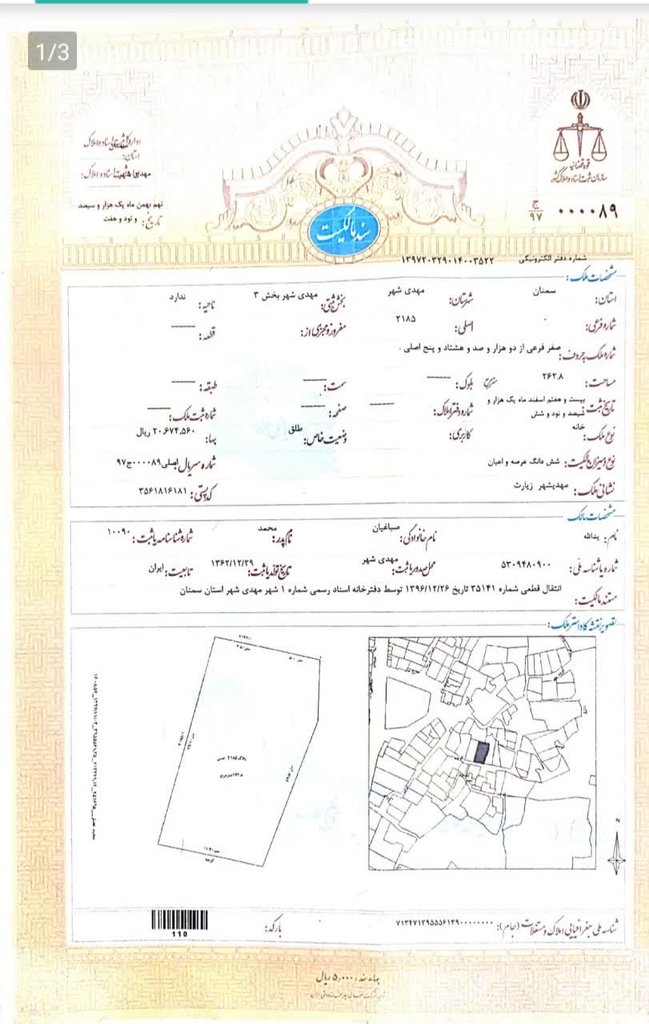 1/3
قوه قضائیه
سازمان ثبت اسناد و املاک کشور
اداره کل ثبت اسناد و املاک
استان:
مهدی شهر ثبت اسناد و املاک:
نهم بهمن ماه یک هزار و سیصد
تاریخ: و نود و هفت
ج
۹۷
۰۰۰۰۸۹
سند مالکیت
شماره دفتر الکترونیکی ۱۳۹۷۲۰۳۲۹۰۱۴۰۰۳۵۲۲
مشخصات ملک:
استان: سمنان شهرستان: مهدی شهر بخش ثبتی: مهدی شهر بخش ۳ ناحیه: ندارد
شماره فرعی: ۰ اصلی: ۲۱۸۵ مفروز و مجزی از: قطعه:
شماره ملک به حروف: صفر فرعی از دو هزار و صد و هشتاد و پنج اصلی .
مساحت: ۲۶۲.۸ متر مربع بلوک: سمت: طبقه:
تاریخ ثبت: بیست و هفتم اسفند ماه یک هزار و سیصد و نود و شش شماره دفتر املاک: صفحه: شماره ثبت ملک:
نوع ملک: خانه کاربری: وضعیت خاص: طلق بهاء: ۲۰.۶۷۴.۵۶۰ ریال
نوع و میزان مالکیت: شش دانگ عرصه و اعیان شماره سریال اصلی: ۰۰۰۰۸۹ج۹۷
نشانی ملک: مهدیشهر زیارت کد پستی: ۳۵۶۱۸۱۶۱۸۱
مشخصات مالک
نام: یدالله نام خانوادگی: صباغیان نام پدر: محمد شماره شناسنامه یا ثبت: ۱۰۰۹۰
شماره یا شناسه ملی: ۵۳۰۹۴۸۰۹۰۰ محل صدور یا ثبت: مهدی شهر تاریخ تولد یا ثبت: ۱۳۶۲/۱۲/۲۹ تابعیت: ایران
مستند مالکیت: انتقال قطعی شماره ۳۵۱۴۱ تاریخ ۱۳۹۶/۱۲/۲۶ توسط دفترخانه اسناد رسمی شماره ۱ شهر مهدی شهر استان سمنان
تصویر نقشه کاداستر ملک:
N
پلاک ۲۱۸۵ اصلی
کوچه
شناسه ملی جغرافیایی املاک و مستغلات (جام):
بارکد:
110
بهاء سند: ۵,۰۰۰ ریال